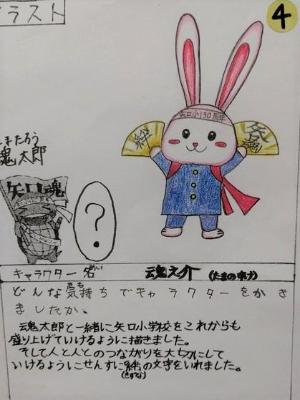 ラスト
4
矢口小150周年
絆
矢口魂
たまたろう
魂太郎
矢口魂
?
キャラクター名 魂之介 (たまのすけ)
どんな気持ちでキャラクターをかき
ましたか。
魂太郎と一緒に矢口小学校をこれからも
盛り上げていけるように描きました。
そして人と人とのつながりを大切にして
いけるようにせんすに絆の文字をいれました。
(きずな)